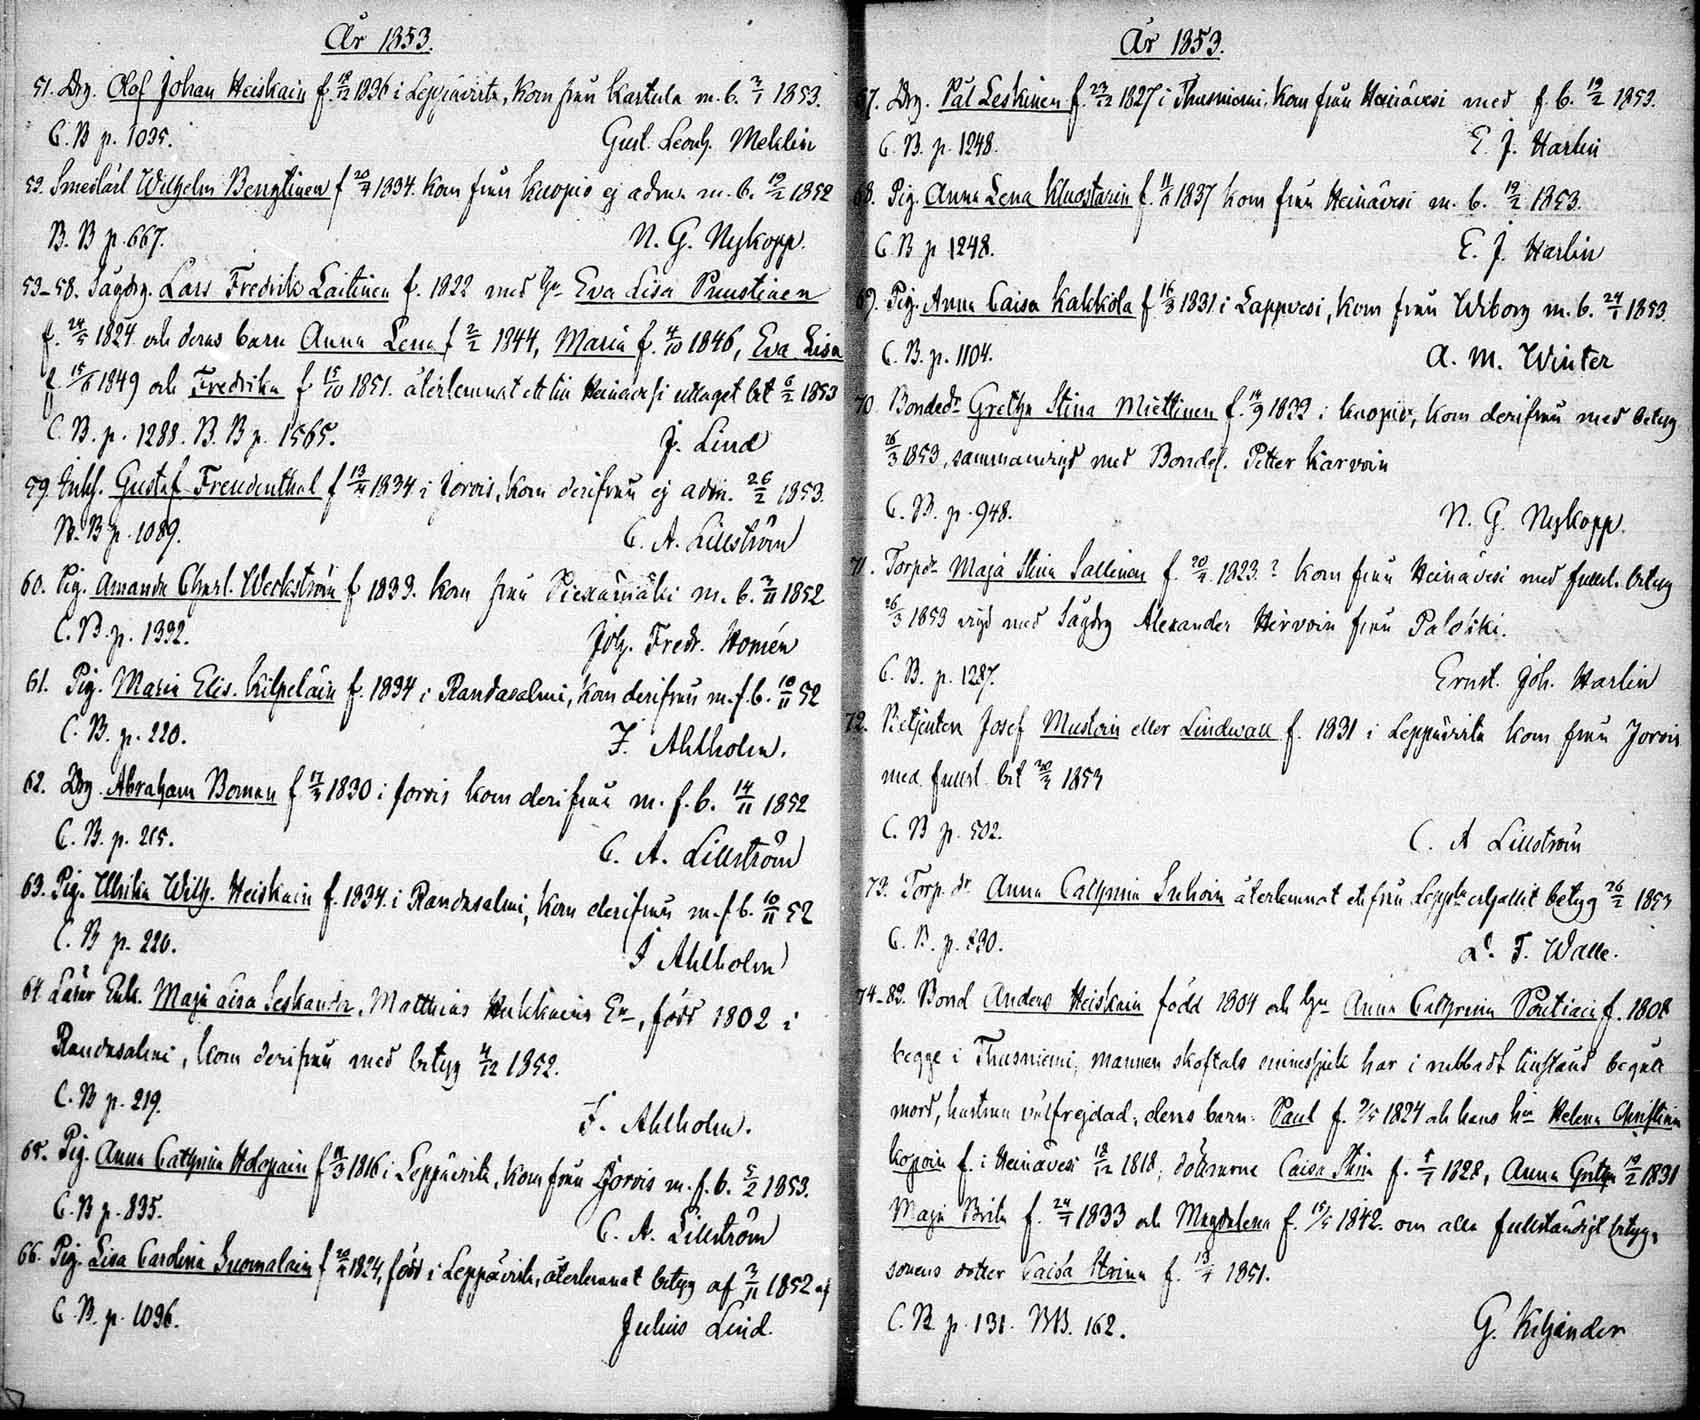 År 1853.
51. Drg. Olof Johan Heiskain f. 18/12 1836 i Leppävirta, kom från Kartula m. b. 3/1 1853.
C. B p. 1035. Gust. Leonh. Meklin
52. Smedlärl Wilhelm Bengtlinen f 20/7 1834. kom från Kuopio ej adm. m. b. 19/2 1852
B. B p. 667. N. G. Nykopp.
53-58. Sågdrg. Lars Fredrik Laitinen f. 1822 med hu Eva Lisa Puustinen
f. 24/5 1824 och deras barn Anna Lena f 2/2 1844, Maria f. 4/10 1846, Eva Lisa
f. 15/6 1849 och Fredrika f 15/10 1851. återlemnat ett till Heinävesi uttaget bet 6/2 1853
C. B. p. 1288. B. B p. 1565. J. Lind
59. Gustaf Freudenthal f 13/11 1834 i Jorois, kom derifrån ej adm. 26/2 1853.
B. B p. 1089. C. A. Lillström
60. Pig. Amanda Charl. Weckström f 1833. kom från Piexämäki m. b. 3/11 1852
C. B. p. 1332. Joh. Fredr. Homén
61. Pig. Maria Elis. Kilpeläin f. 1834 i Randasalmi, kom derifrån m. f. b. 10/11 52
C. B. p. 220. F. Ahlholm.
62. Drg. Abraham Boman f 17/3 1830 i Jorois kom derifrån m. f. b. 14/11 1852
C. B. p. 215. C. A. Lillström
63. Pig. Ulrika Wilh. Heiskain f. 1834. i Randasalmi, kom derifrån m. f b. 10/11 52
C. B p. 220. F Ahlholm
64 Enk. Maja Caisa, Matthias En, född 1802 i
Randasalmi, kom derifrån med betyg 4/12 1852.
C. B p. 219. F. Ahlholm.
65. Pig. Anna Cathrina Holopain f 11/3 1816 i Leppävirta, kom från Jorois m. f. b. 5/2 1853.
C. B p. 835. C. A. Lillström
66. Pig. Lisa Carolina Suomalain f 20/2 1824, född i Leppävirta, återlemnat betyg af 3/11 1852 af
C. B. p. 1036. Julius Lind.
År 1853.
67. Drg. Pål Leskinen f. 23/12 1827 i Thusniemi, kom från Heinävesi med f. b. 19/2 1853.
C. B. p. 1248. E. J. Harlin
68. Pig. Anna Lena Kluostarin f. 11/8 1837 kom från Heinävesi m. b. 19/2 1853.
C. B p 1248. E. J. Harlin
69. Pig. Anna Caisa Kakkola f 16/8 1831 i Lappvesi, kom från Wiborg m. b. 24/1 1853
C. B. p. 1104. A. M. Winter
70. Bondedr Gretha Stina Miettinen f. 14/9 1833 i Kuopio, kom derifrån med betyg
26/3 1853, sammanvigd med Bondes. Petter Karvoin
C. B. p. 948. N. G. Nykopp.
71. Torpdr Maja Stina Sallinen f. 20/4 1823.? kom från Heinävesi med fullst. betyg
26/3 1853 vigd med Sågdrg Alexander Hirvoin från Paloiski.
C. B. p. 1287. Ernst. Joh. Harlin
72. Betjenten Josef Mustoin eller Lindwall f. 1831 i Leppävirta kom från Jorois
med fullst. bet 30/3 1853
C. B p. 502. C. A Lillström
73. Torp. dr Anna Cathrina Suhoin återlemnat ett från erhållit betyg 26/2 1853
C. B. p. 830. L. F. Walle.
74-82. Bond Anders Heiskain född 1804 och hu Anna Cathrina Poutiain f. 1808
begge i Thusniemi, mannen har i rubbadt tillstånd begått
mord, hustrun välfrejdad, deras barn: Paul f. 2/5 1824 och hans hu Helena Christina
Kopoin f. i Heinävesi 18/12 1818, döttrarne Caisa Stina f. 5/7 1828, Anna Gretha 19/2 1831
Maja Brita f. 24/7 1833 och Magdalena f. 15/5 1842. om alla fullständigt betyg,
sonens dotter Caisa Stina f. 13/4 1851.
C. B. p. 131. BB. 162. G. Kiljander